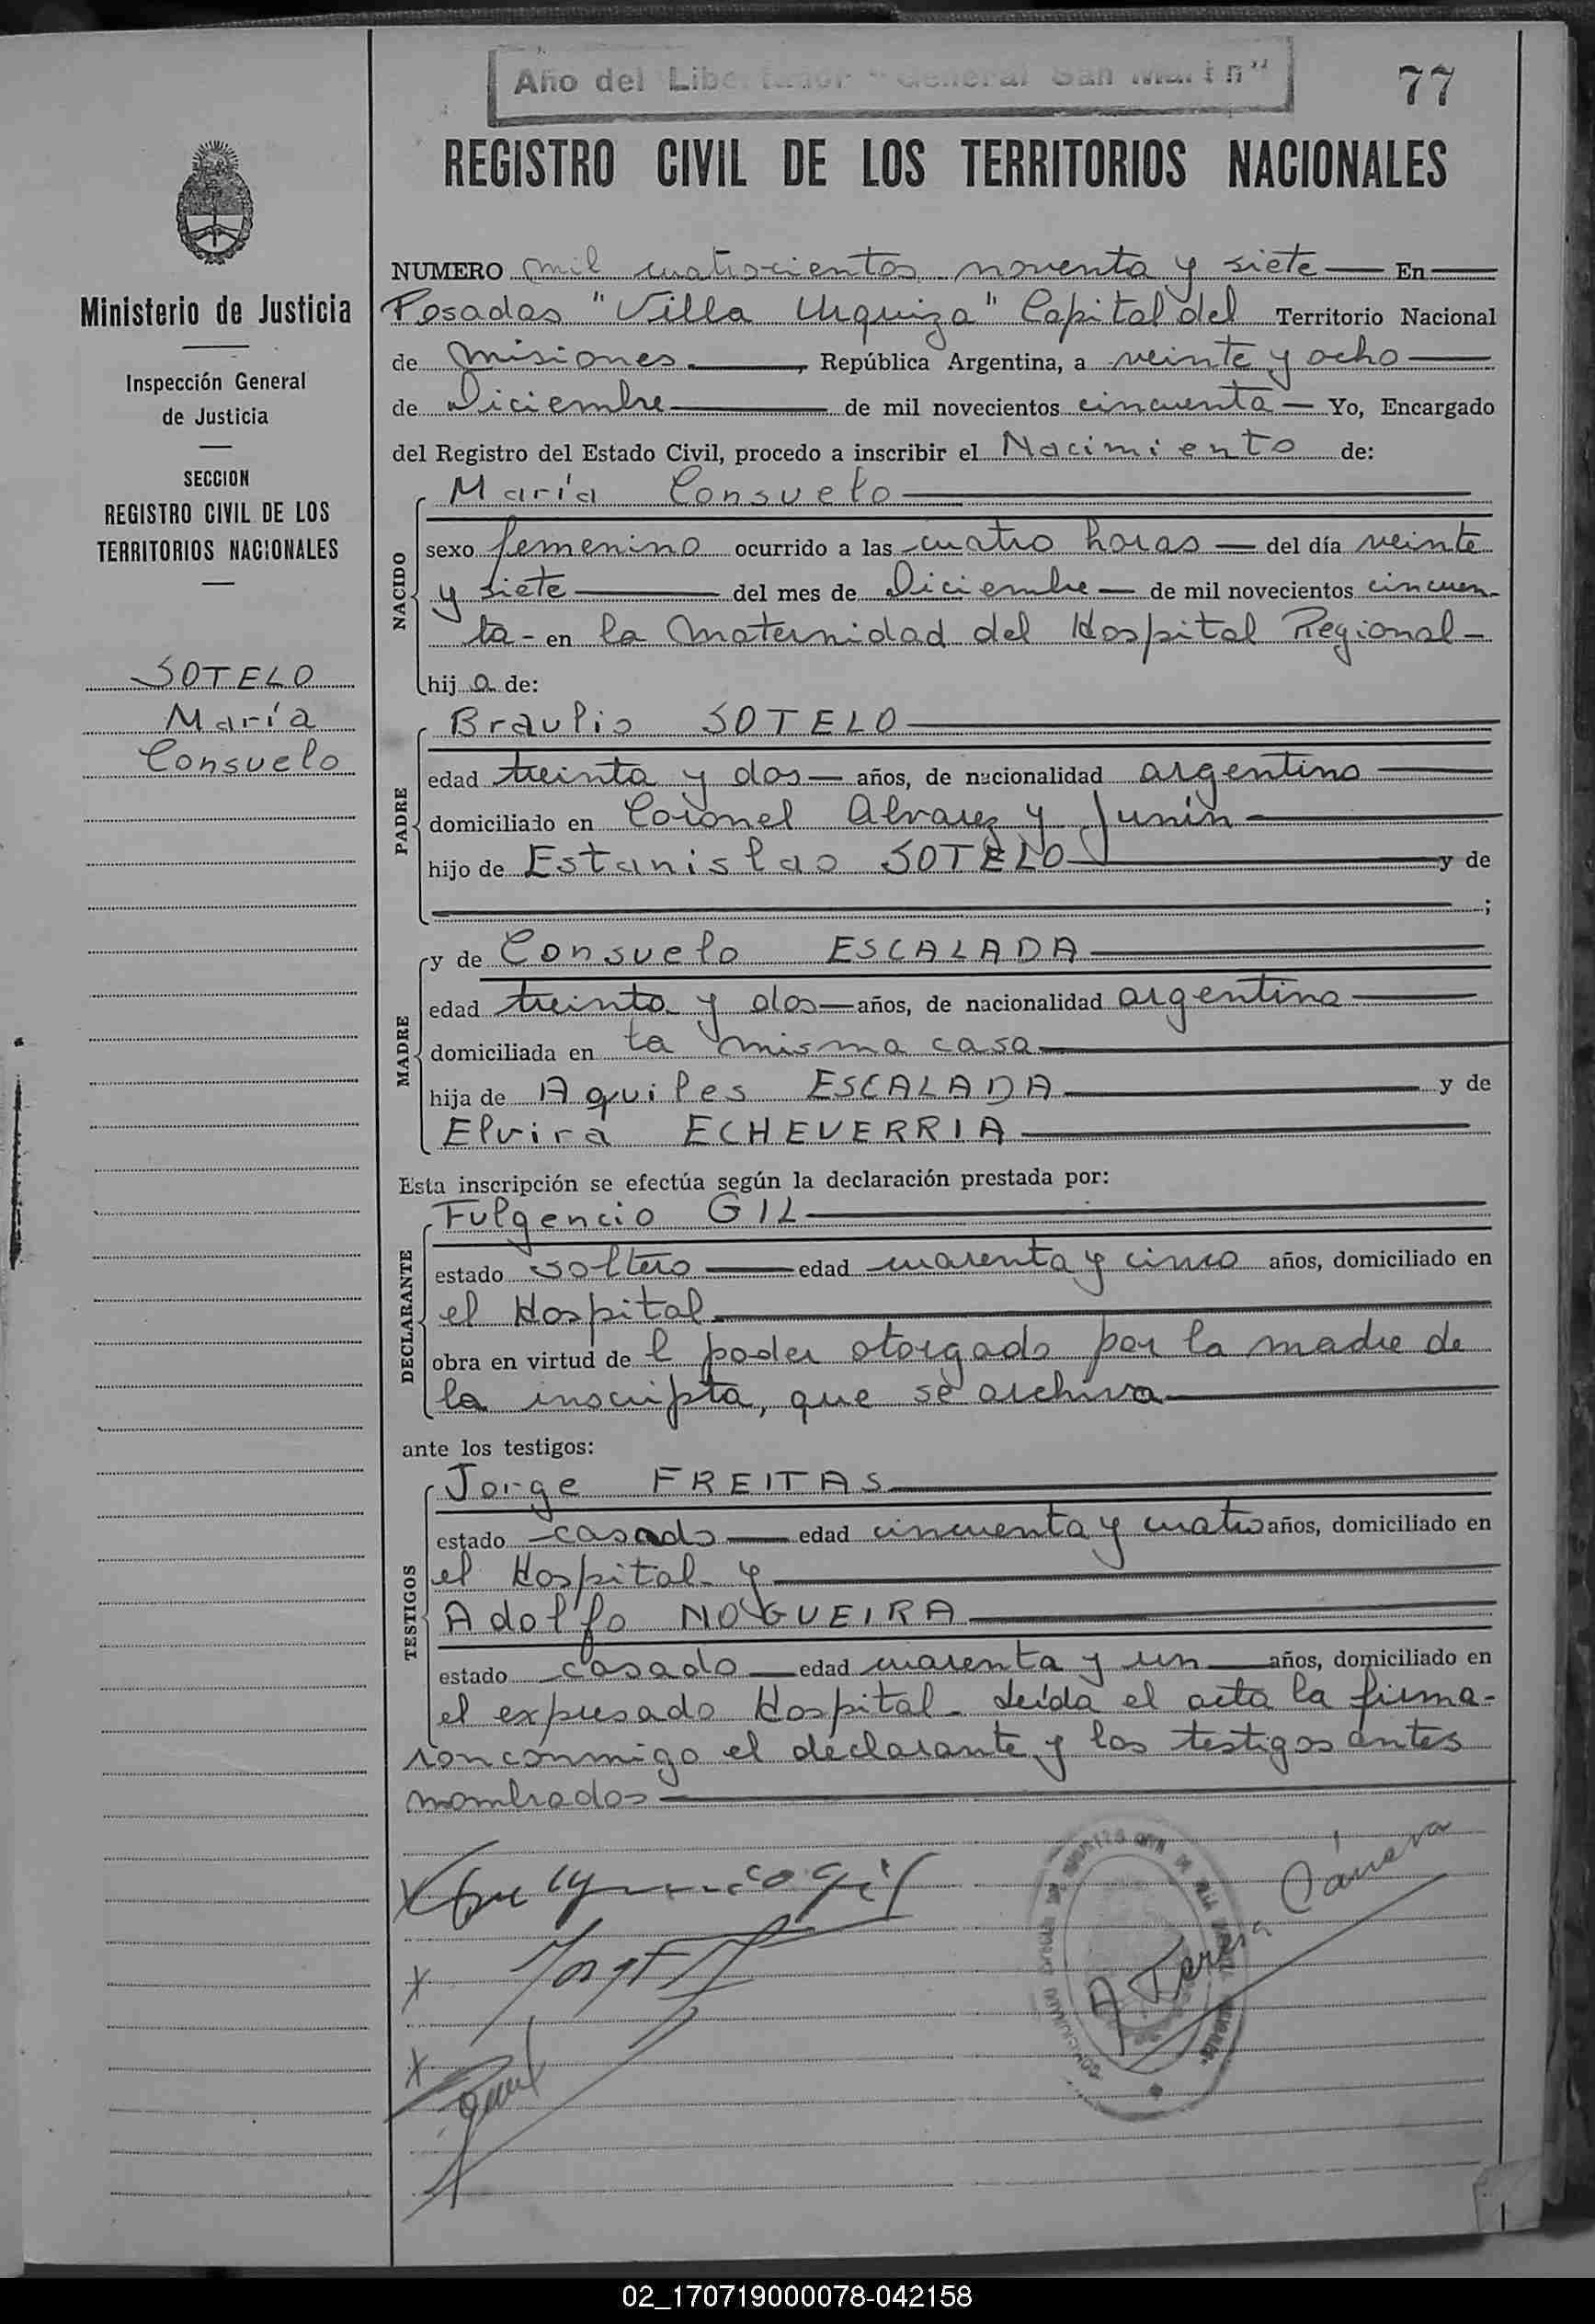 Año del Libertador "General San Martin"
77
REGISTRO CIVIL DE LOS TERRITORIOS NACIONALES
Ministerio de Justicia
Inspección General
de Justicia
SECCION
REGISTRO CIVIL DE LOS
TERRITORIOS NACIONALES
SOTELO
María
Consuelo
NUMERO mil cuatrocientos noventa y siete — En —
Posadas "Villa Urquiza" Capital del Territorio Nacional
de Misiones —, República Argentina, a veinte y ocho —
de Diciembre — de mil novecientos cincuenta — Yo, Encargado
del Registro del Estado Civil, procedo a inscribir el Nacimiento de:
NACIDO
María Consuelo —
sexo femenino ocurrido a las cuatro horas — del día veinte
y siete — del mes de Diciembre — de mil novecientos cincuen-
ta - en la Maternidad del Hospital Regional -
hij a de:
PADRE
Braulio SOTELO —
edad treinta y dos — años, de nacionalidad argentino —
domiciliado en Coronel Alvarez y Junín —
hijo de Estanislao SOTELO — y de
— ;
MADRE
y de Consuelo ESCALADA —
edad treinta y dos — años, de nacionalidad argentina —
domiciliada en la misma casa —
hija de Aquiles ESCALADA — y de
Elvira ECHEVERRIA —
Esta inscripción se efectúa según la declaración prestada por:
DECLARANTE
Fulgencio GIL —
estado soltero — edad cuarenta y cinco años, domiciliado en
el Hospital —
obra en virtud de l poder otorgado por la madre de
la inscripta, que se archiva —
ante los testigos:
TESTIGOS
Jorge FREITAS —
estado casado — edad cincuenta y cuatro años, domiciliado en
el Hospital - y —
Adolfo NOGUEIRA —
estado casado — edad cuarenta y un — años, domiciliado en
el expresado Hospital - Leída el acta la firma-
ron conmigo el declarante y los testigos antes
nombrados —
A Teresa Cámara
02_170719000078-042158